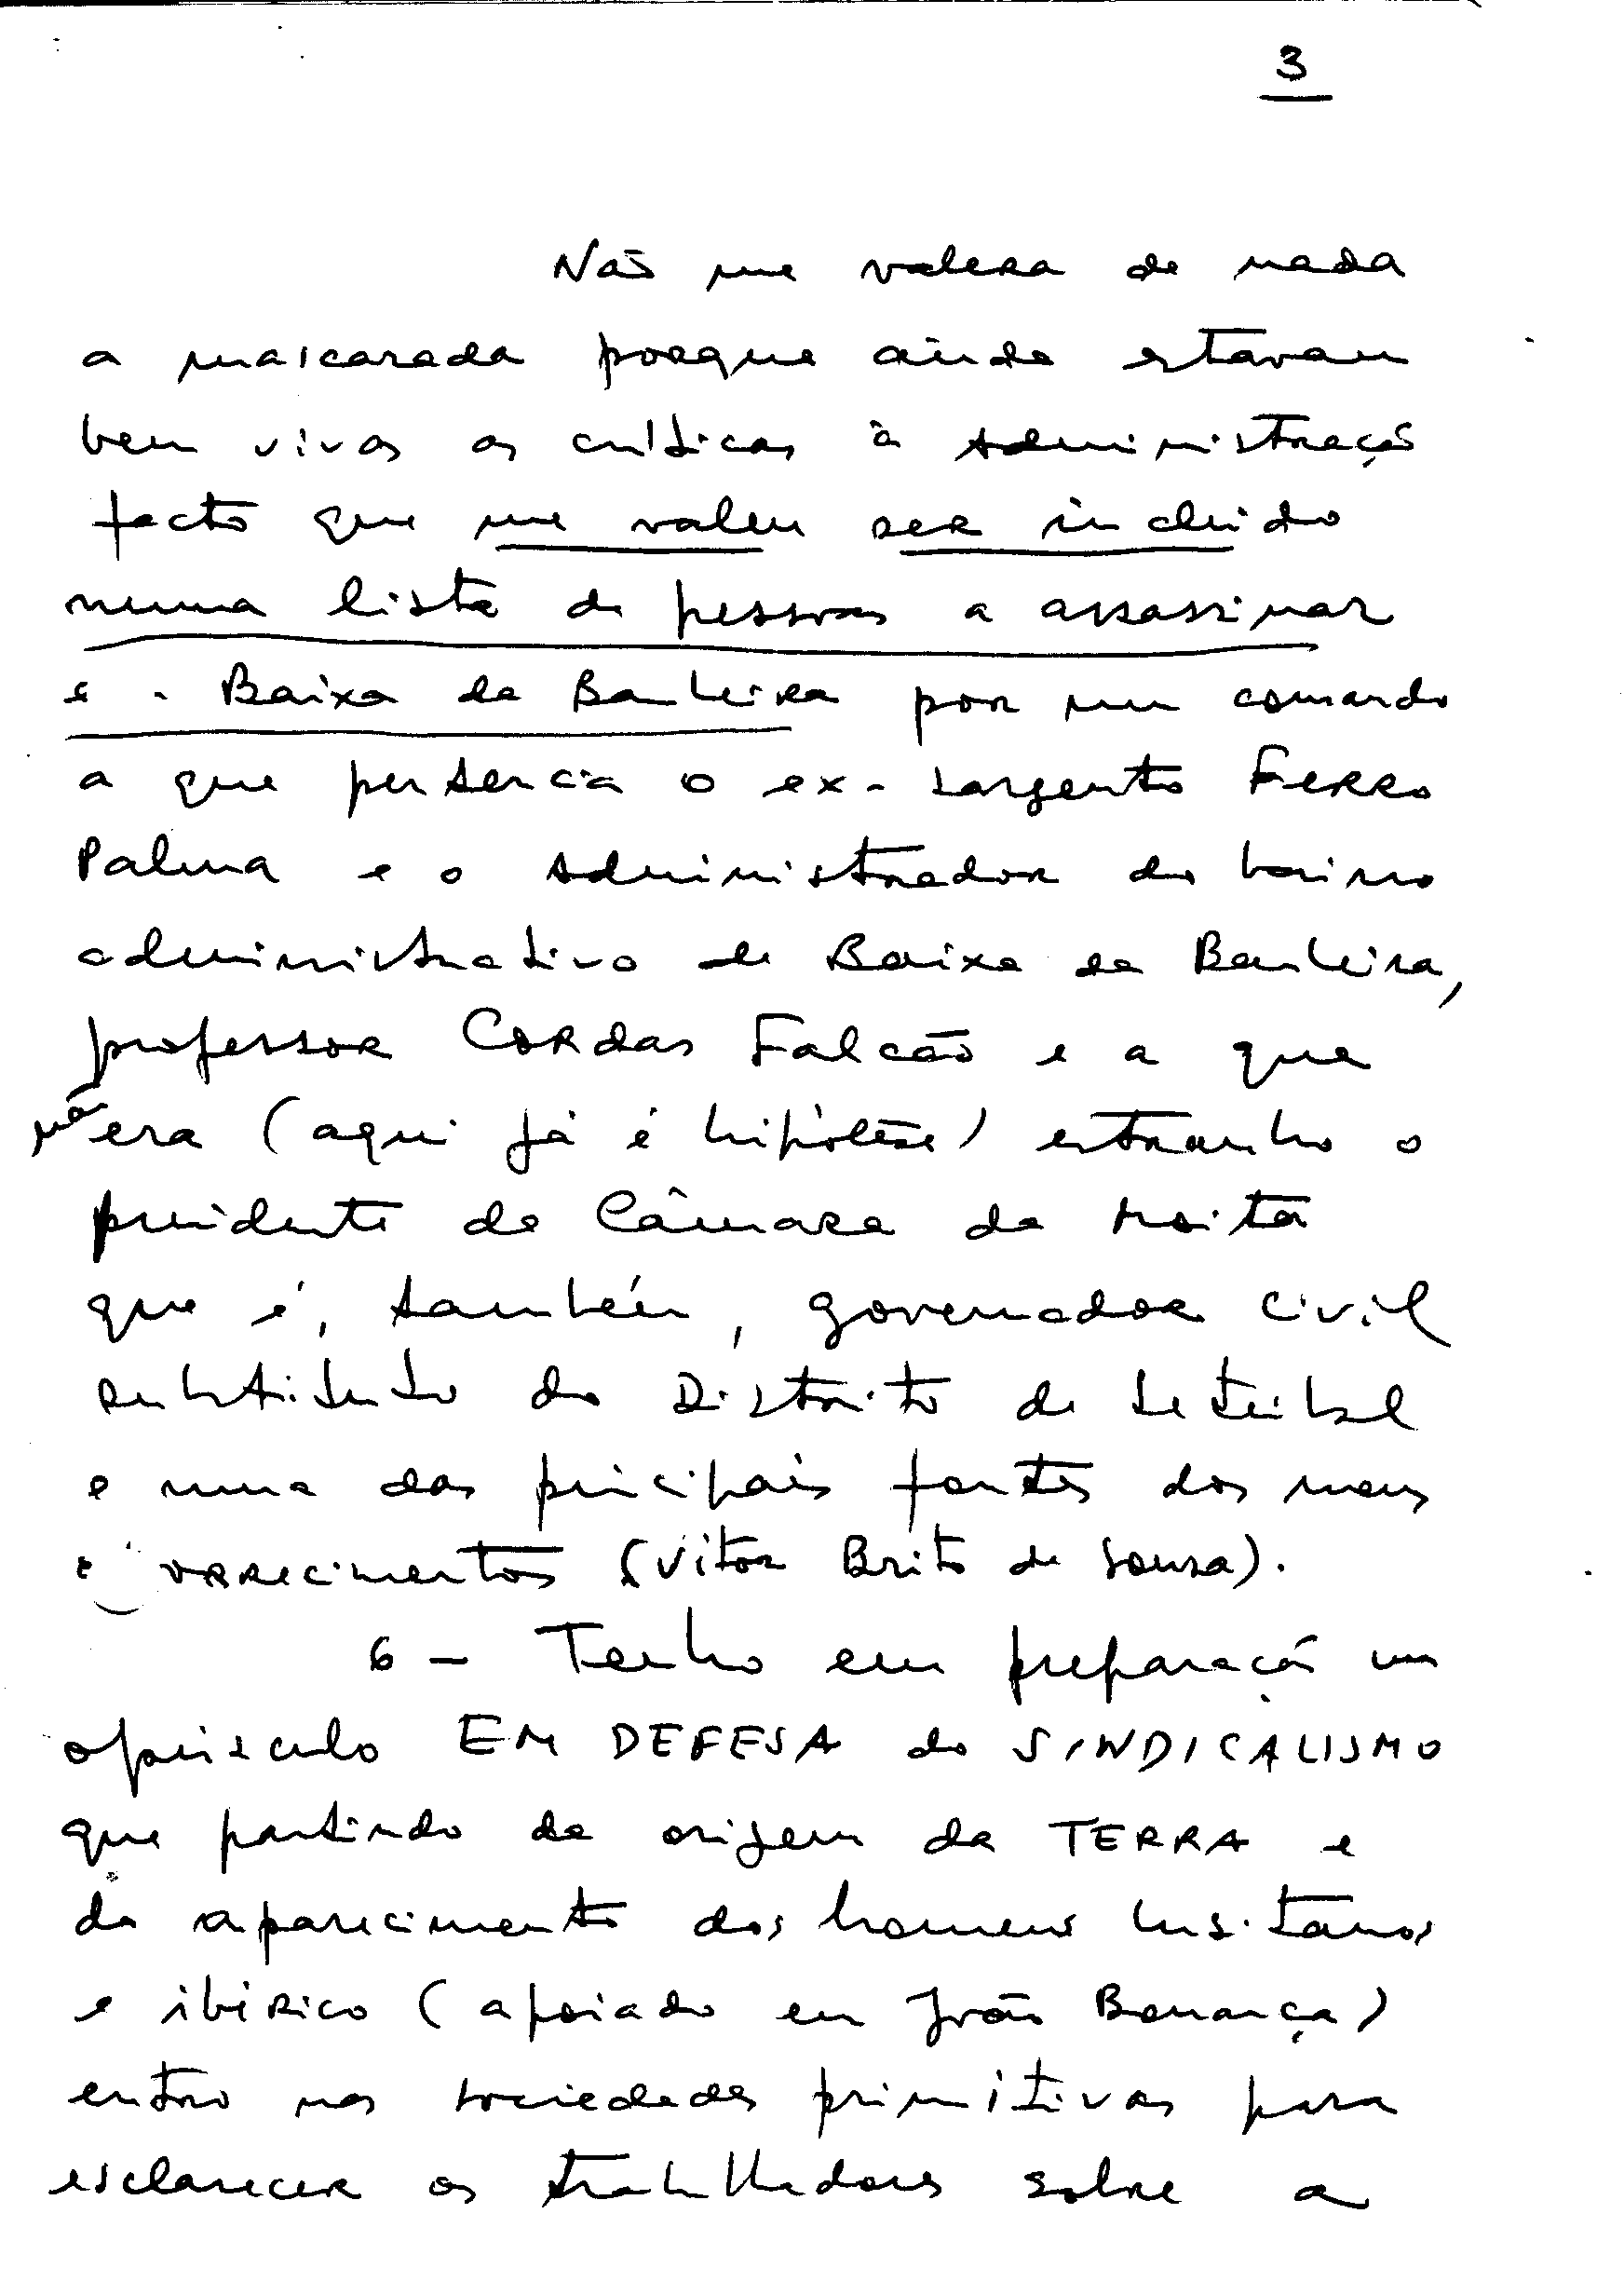 3
Não me valera de nada
a mascarada porque ainda estavam
bem vivas as críticas à administração
facto que me valeu ser incluido
numa lista de pessoas a assassinar
Baixa da Banheira por um comando
a que pertencia o ex-sargento Ferro
Palma e o administrador do bairro
administrativo de Baixa da Banheira,
professor Cordas Falcão e a que
não era (aqui já é hipótese) estranho o
presidente da Câmara da Moita
que é, também, governador civil
substituto do Distrito de Setúbal
e uma das principais fontes dos meus
(Vitor Brito de Sousa).
6 - Tenho em preparação um
opúsculo EM DEFESA do SINDICALISMO
que partindo da origem da TERRA e
do aparecimento dos homens lusitanos
e ibérico (apoiado em João Bonança)
entro nas sociedades primitivas para
esclarecer os trabalhadores sobre a